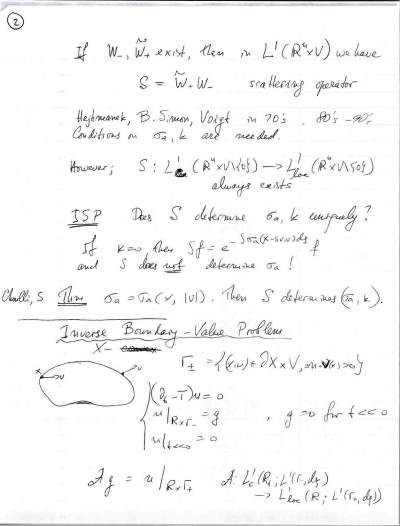 2
If W_, W̃+ exist, then in L¹(Rⁿ×V) we have
S = W̃+ W_ scattering operator
Hejtmanek, B. Simon, Voigt in 70's. 80's - 90's
Conditions on σa, k are needed.
However; S: L¹ (Rⁿ×V\{0}) → L¹loc (Rⁿ×V\{0})
always exists
ISP Does S determine σa, k uniquely?
If k=0 then Sf = e^{-∫σa(x-sv,v)ds} f
and S does not determine σa!
Choulli, S Thm σa = σa(x, |v|). Then S determines (σa, k).
Inverse Boundary-Value Problem
X -
Γ± = {(x,v) ∈ ∂X×V, ±n·v(x)>0}
x v v
(∂t - T)u = 0
u|R×Γ_ = g , g=0 for t<<0
u|t<<0 = 0
Ag = u|R×Γ+ A: L¹c(R; L¹(Γ_, dξ)
→ L¹loc(R; L¹(Γ+, dξ)